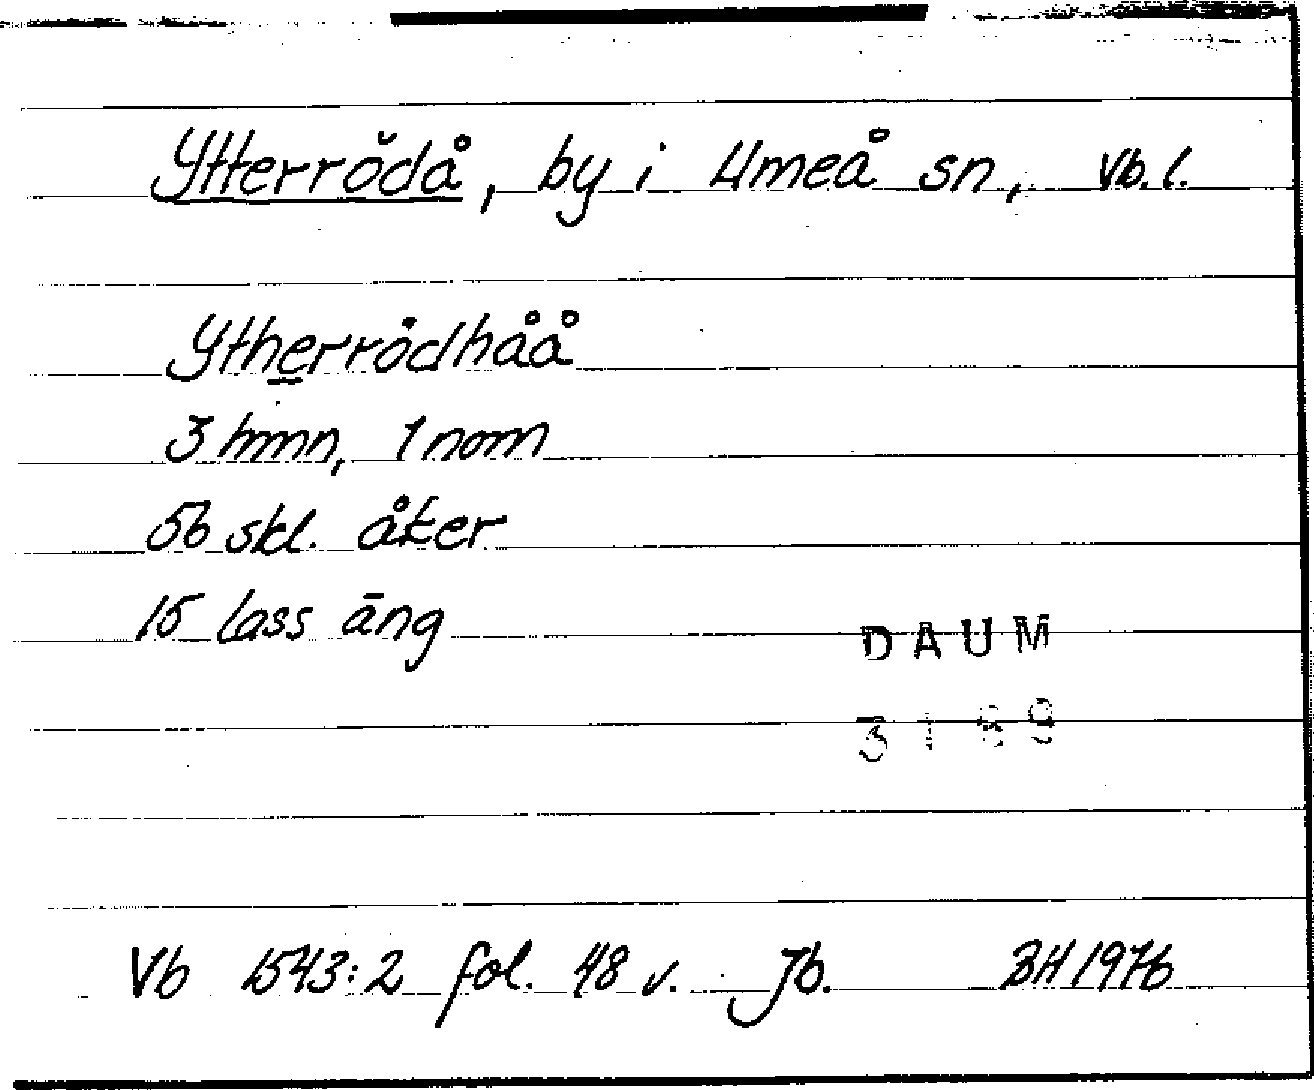 Ytterrödå, by i Umeå sn, Vb. l.
Ytherrödhåå
3 hmn, 1 nom
56 skl. åker
15 lass äng
DAUM
3189
Vb 1543:2 fol. 48 v. Jb. BH 1976